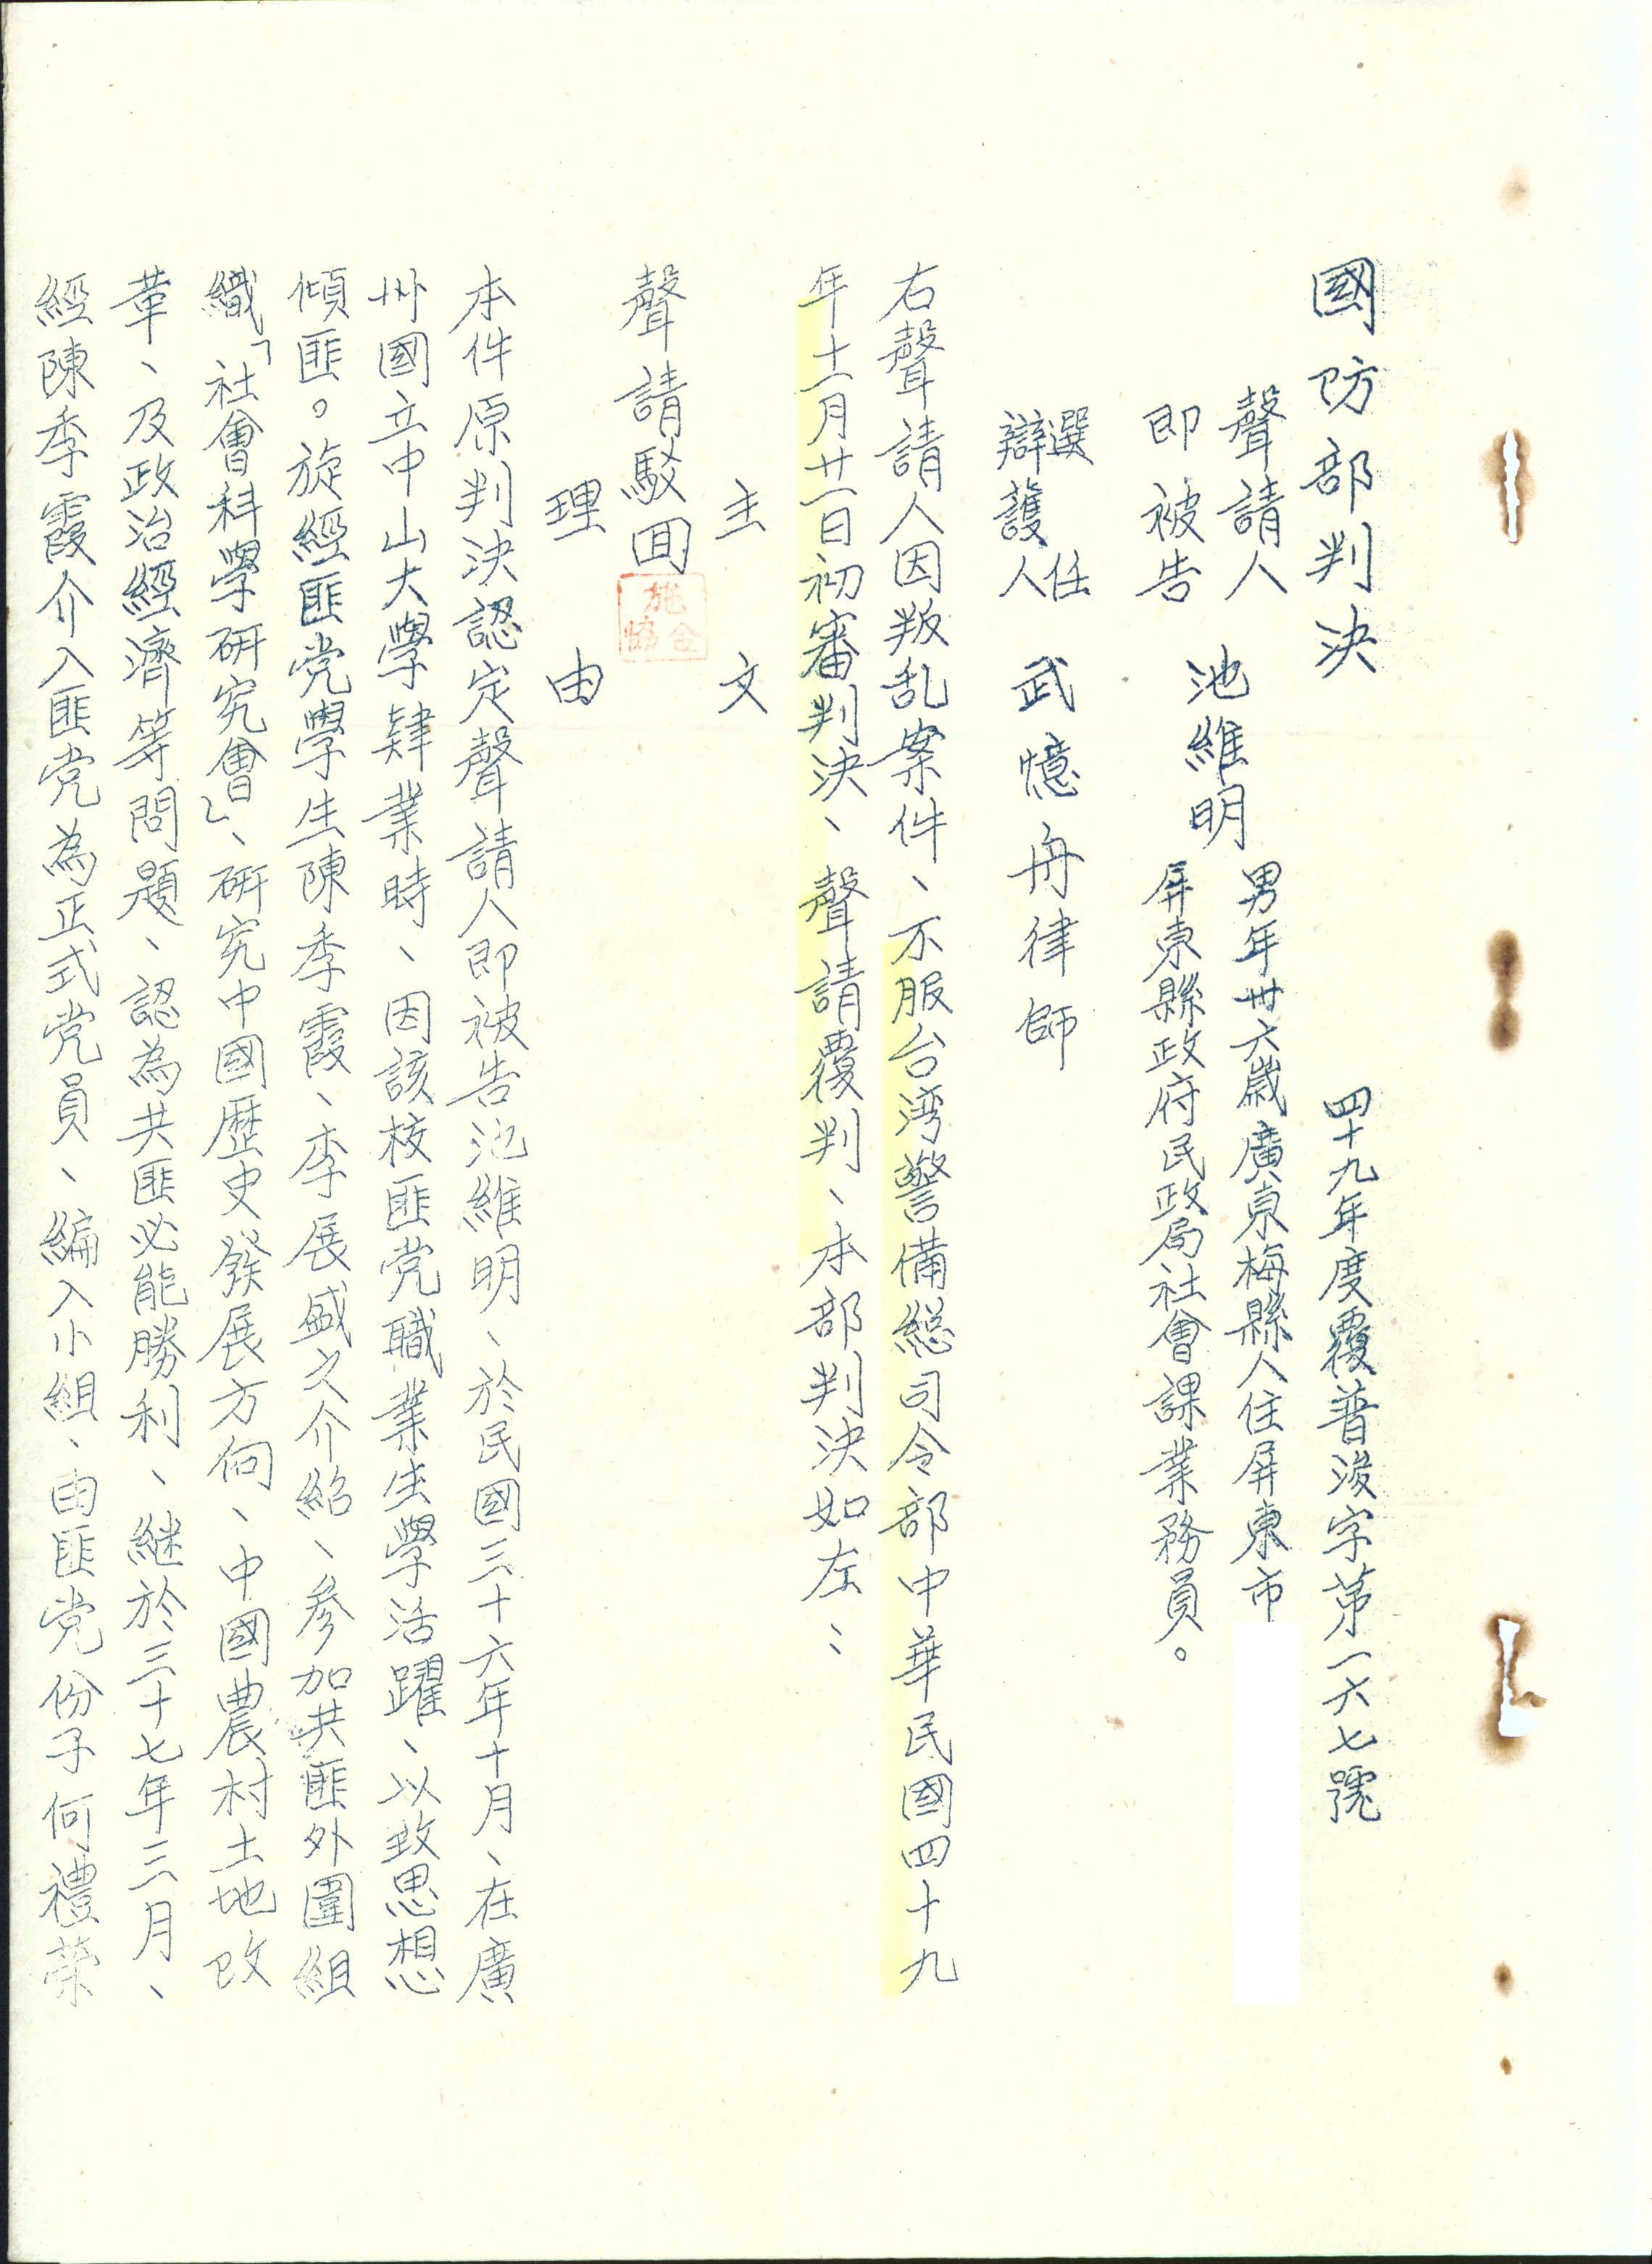 國防部判決
四十九年度覆普浚字第一六七號
聲請人
即被告
池維明
男年卅六歲廣東梅縣人住屏東市
屏東縣政府民政局社會課業務員。
選任
辯護人
武憶舟律師
右聲請人因叛乱案件、不服台湾警備総司令部中華民國四十九
年十一月廿一日初審判決、聲請覆判、本部判決如左：
主文
聲請駁回
理由
本件原判決認定聲請人即被告池維明、於民國三十六年十月、在廣
州國立中山大學肄業時、因該校匪党職業生學活躍、以致思想
傾匪。旋經匪党學生陳季霞、李展盛之介紹、參加共匪外圍組
織「社會科學研究會」、研究中國歷史發展方向、中國農村土地改
革、及政治經濟等問題、認為共匪必能勝利、継於三十七年三月、
經陳季霞介入匪党為正式党員、編入小組、由匪党份子何禮榮